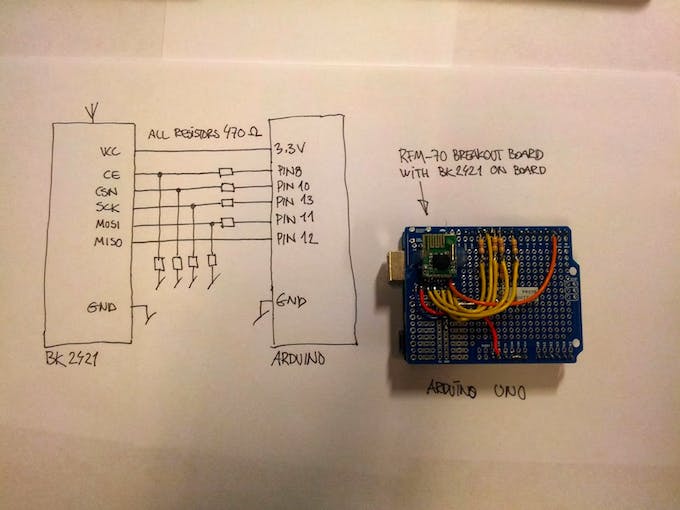 ALL RESISTORS 470 Ω
VCC
CE
CSN
SCK
MOSI
MISO
GND
BK2421
3.3V
PIN8
PIN 10
PIN 13
PIN 11
PIN 12
GND
ARDUINO
RFM-70 BREAKOUT BOARD
WITH BK2421 ON BOARD
ARDUINO UNO